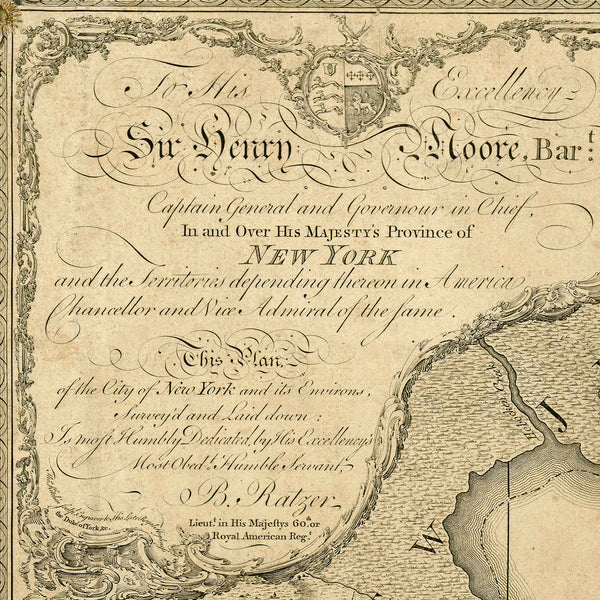 To His Excellency
Sir Henry Moore, Bar.t
Captain General and Governour in Chief,
In and Over His Majesty's Province of
New York
and the Territories depending thereon in America
Chancellor and Vice Admiral of the same.
This Plan,
of the City of New York and its Environs,
Survey'd and Laid down:
Is most Humbly Dedicated, by His Excellency's
Most Obed.t Humble Servant,
B. Ratzer
Lieut.t in His Majestys 60.or
Royal American Reg.t
the Duke of York, &c.
W
J